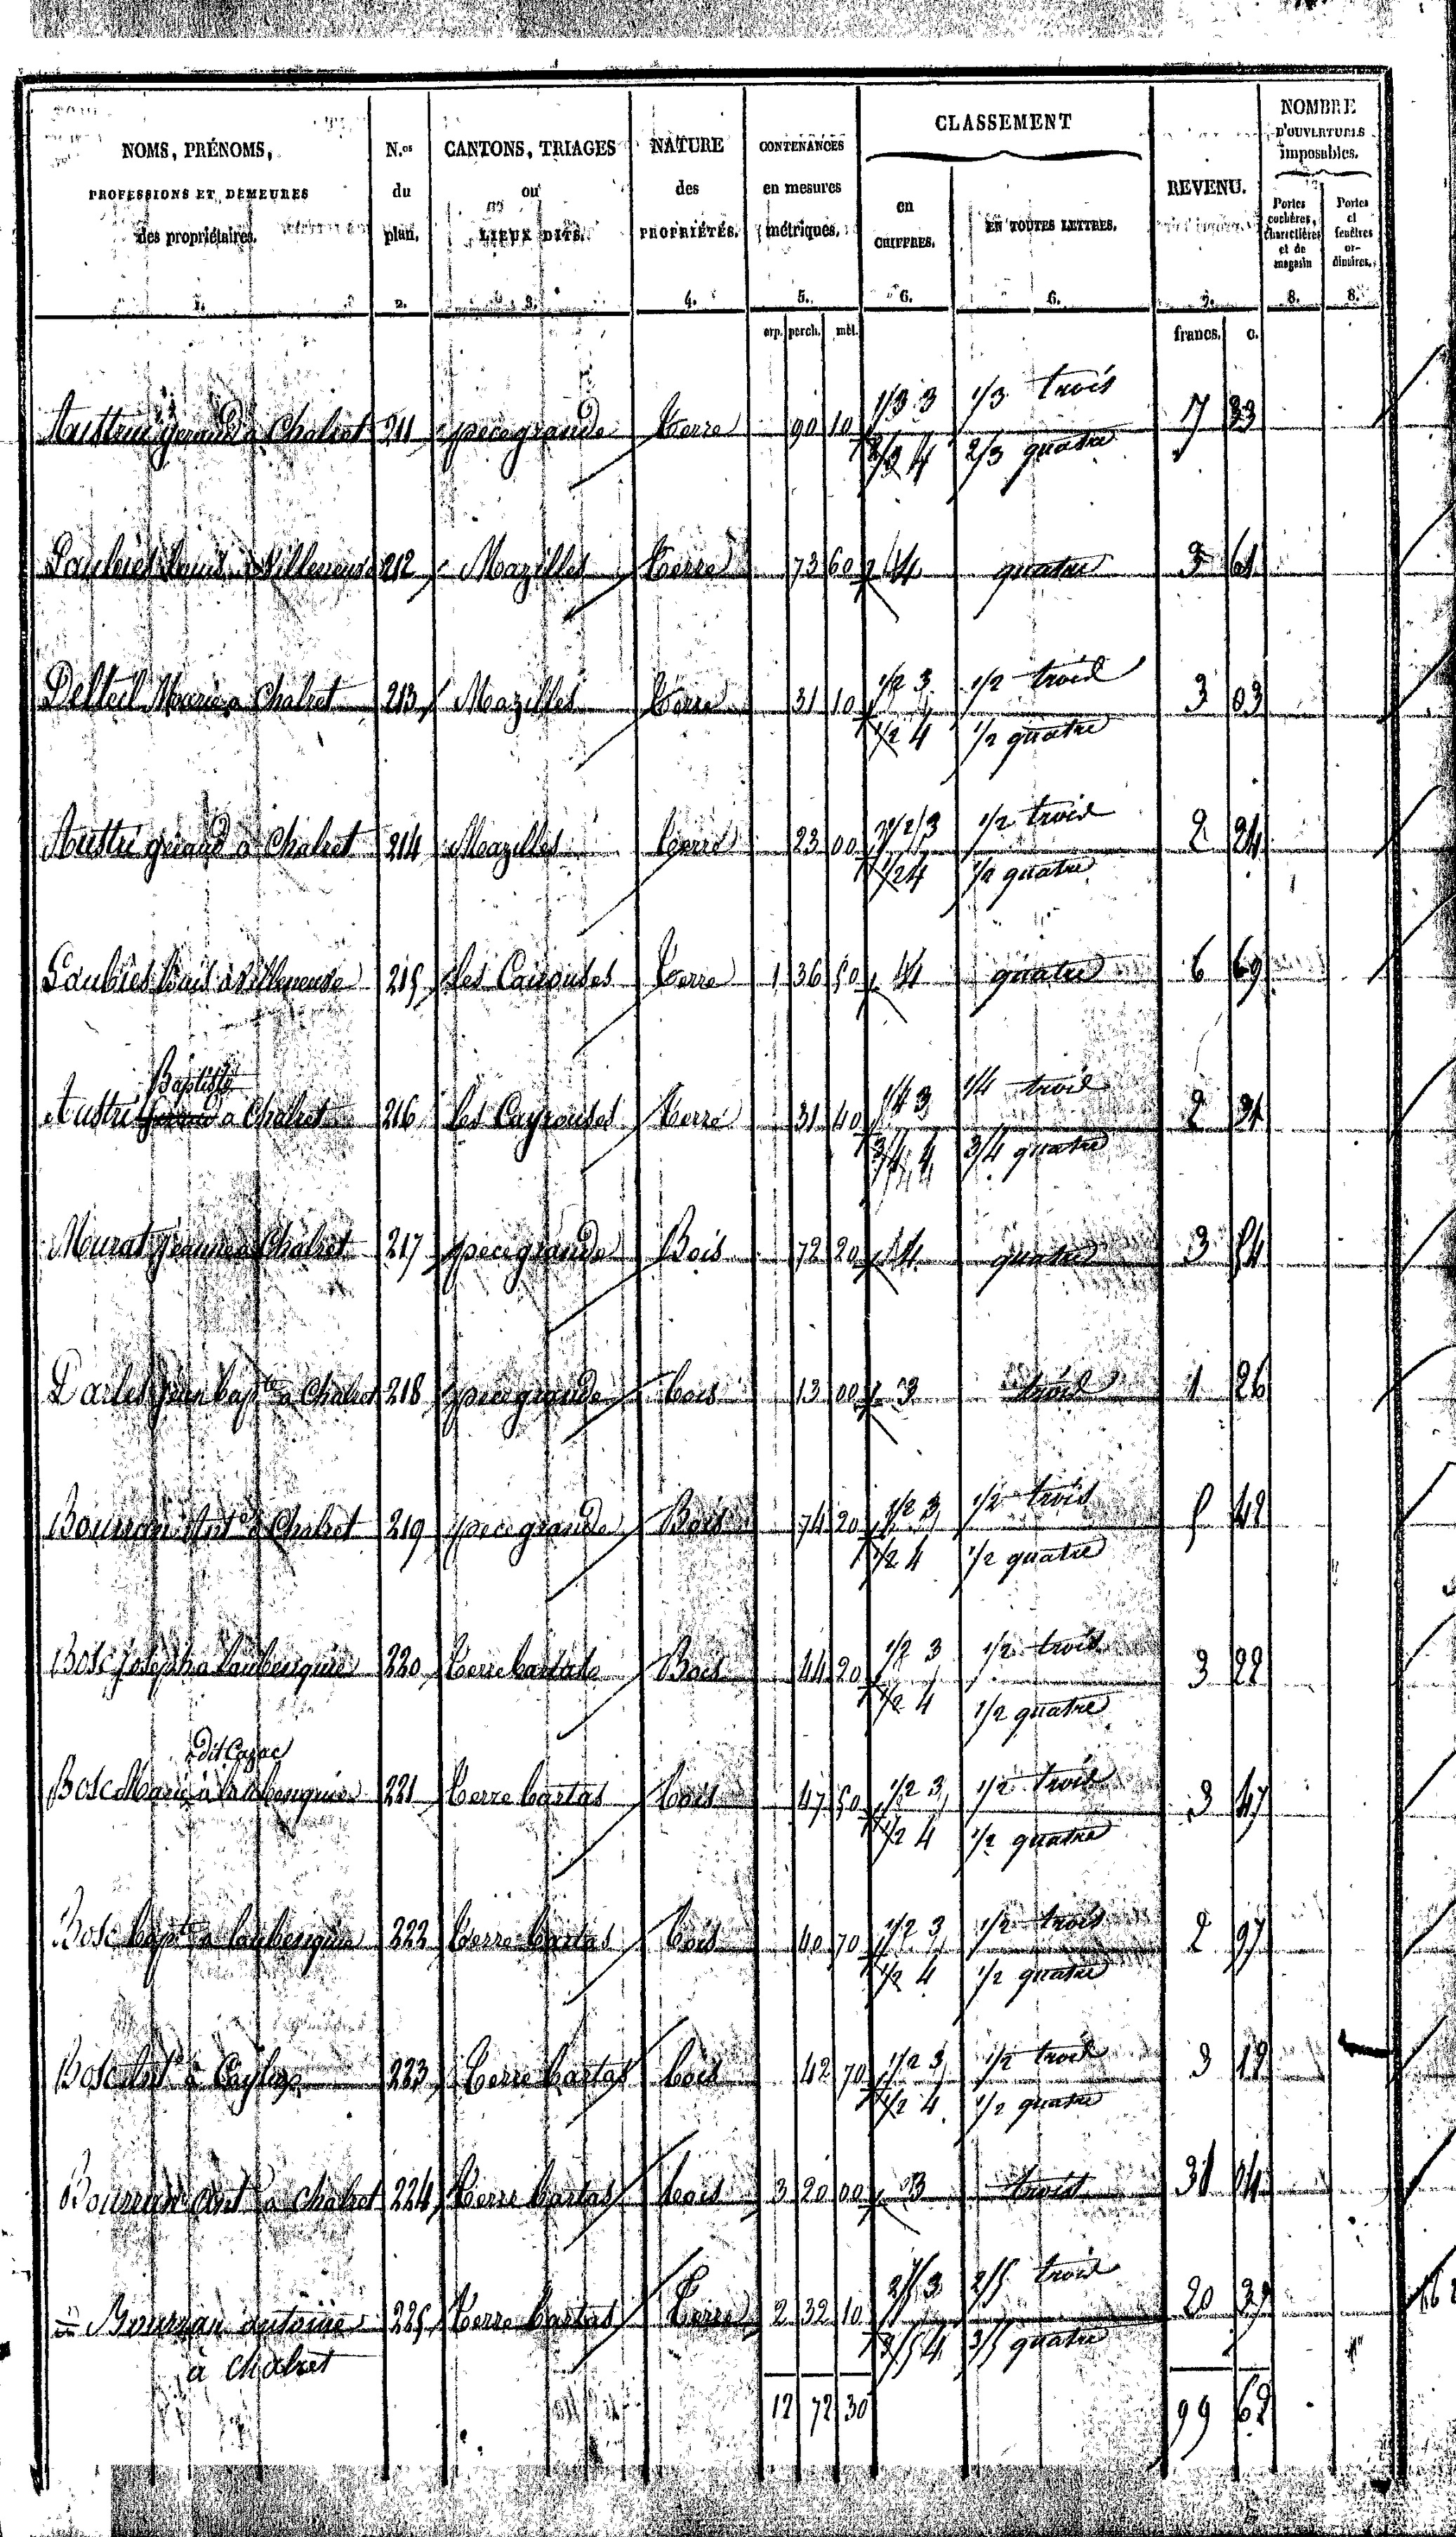 NOMS, PRÉNOMS, PROFESSIONS ET DEMEURES des propriétaires. N.os du plan. CANTONS, TRIAGES ou LIEUX DITS. NATURE des PROPRIÉTÉS. CONTENANCES en mesures métriques. CLASSEMENT en CHIFFRES. EN TOUTES LETTRES. REVENU. NOMBRE D'OUVERTURES imposables. Portes cochères, charretières et de magasin Portes et fenêtres ordinaires.
1. 2. 3. 4. 5. 6. 6. 7. 8. 8.
arp. perch. mèt. francs. c.
Austrui geraud a Chalret 211 pece grande terre 90 10 1/3 3 1/3 trois 7 33
2/3 4 2/3 quatre
Louis a Villeneuve 212 Mazilles terre 73 60 4 quatre 3 61
Delteil Marie a Chalret 213 Mazilles terre 31 10 1/2 3 1/2 trois 3 03
1/2 4 1/2 quatre
Austri geraud a Chalret 214 Mazilles terre 23 00 1/2 3 1/2 trois 2 24
1/2 4 1/2 quatre
Louis a Villeneuve 215 les Cairouses terre 1 36 50 4 quatre 6 69
Baptiste
Austri geraud a Chalret 216 les Cayrouses terre 31 40 1/4 3 1/4 trois 2 31
3/4 4 3/4 quatre
Murat jeanne a Chalret 217 pece grande Bois 72 20 4 quatre 3 54
Darles jean bapte a Chalret 218 pece grande bois 13 00 3 trois 1 26
Bourran Ante a Chalret 219 pece grande Bois 74 20 1/2 3 1/2 trois 5 42
1/2 4 1/2 quatre
Bosc joseph a laubenquie 220 terre bartas Bois 44 20 1/2 3 1/2 trois 3 22
1/2 4 1/2 quatre
dit Cazac
Bosc Marie a laubenquie 221 terre bartas bois 47 50 1/2 3 1/2 trois 3 47
1/2 4 1/2 quatre
Bosc bapte a laubenquie 222 terre bartas bois 40 70 1/2 3 1/2 trois 2 97
1/2 4 1/2 quatre
Bosc Ante a 223 terre bartas bois 42 70 1/2 3 1/2 trois 3 12
1/2 4 1/2 quatre
Bourran Ante a Chalret 224 terre bartas bois 3 20 00 3 trois 31 04
Bourran antoine 225 terre bartas terre 2 32 10 2/5 3 2/5 trois 20 37
à chalret 3/5 4 3/5 quatre
12 72 30 99 62